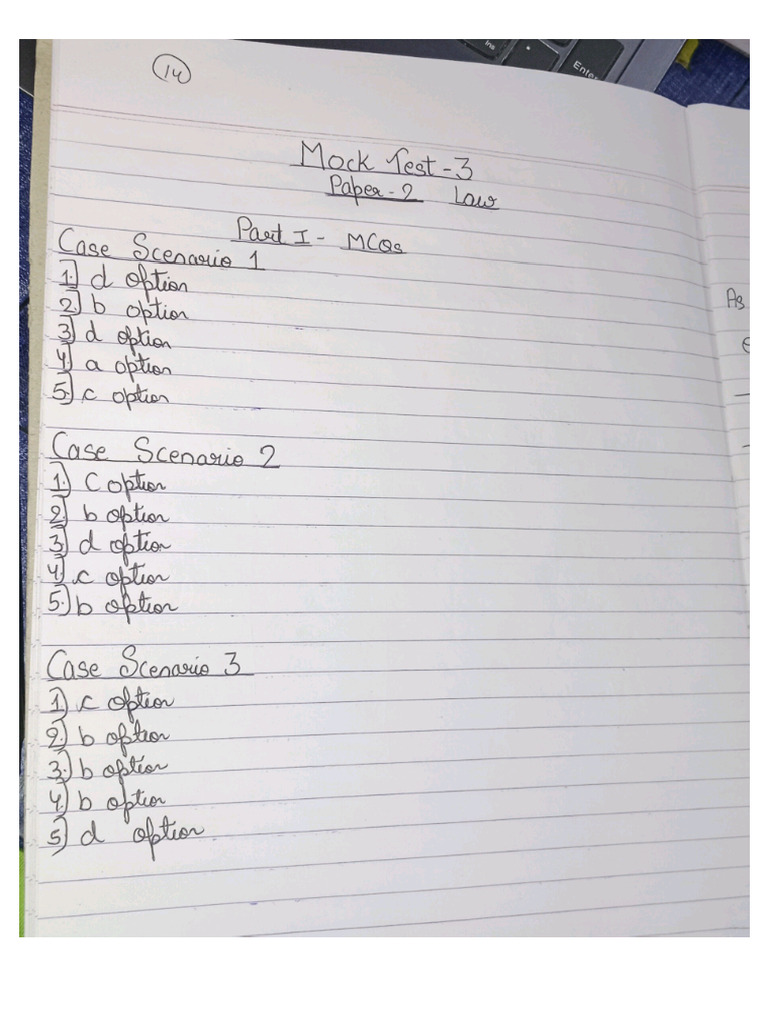 14
Mock Test-3
Paper-2 Law
Part I - MCQs
Case Scenario 1
1.] d option
2.] b option
3.] d option
4.] a option
5.] c option
Case Scenario 2
1.] C option
2.] b option
3.] d option
4.] c option
5.] b option
Case Scenario 3
1.] c option
2.] b option
3.] b option
4.] b option
5.] d option
As
Ins
Enter